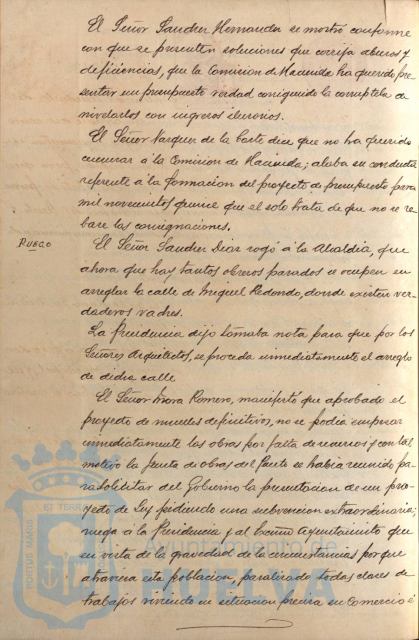 El Señor Sanchez Hernandez se mostró conforme
con que se presenten soluciones que corrija abusos y
deficiencias, que la Comision de Hacienda ha querido pre-
sentar un presupuesto verdad corrigiendo la corruptela de
nivelarlos con ingresos ilusorios.
El Señor Vazquez de la Corte dice que no ha querido
censurar á la Comision de Hacienda; alaba su conducta
referente á la formacion del proyecto de presupuesto para
mil novecientos quince que el solo trata de que no se re-
base las consignaciones.
RUEGO
El Señor Sanchez Diaz rogó á la Alcaldia, que
ahora que hay tantos obreros parados se ocupen en
arreglar la calle de Miguel Redondo, donde existen ver-
daderos vaches.
La Presidencia dijo tomaba nota para que por los
Señores Arquitectos, se proceda inmediatamente el arreglo
de dicha calle
El Señor Mora Romero, manifestó que aprobado el
proyecto de muelles definitivos, no se podia empezar
inmediatamente las obras por falta de recursos y con tal
motivo la Junta de obras del Puerto se habia reunido pa-
ra solicitar del Gobierno la presentacion de un pro-
yecto de Ley pidiendo una subvencion extraordinaria;
ruega á la Presidencia y al Excmo Ayuntamiento que
en vista de la gravedad de las circunstancias por que
atraviesa esta poblacion, paralizado todas clases de
trabajos viviendo en situacion precisa su Comercio é
PORTUS MARIS ET TERRAE
HUELVA